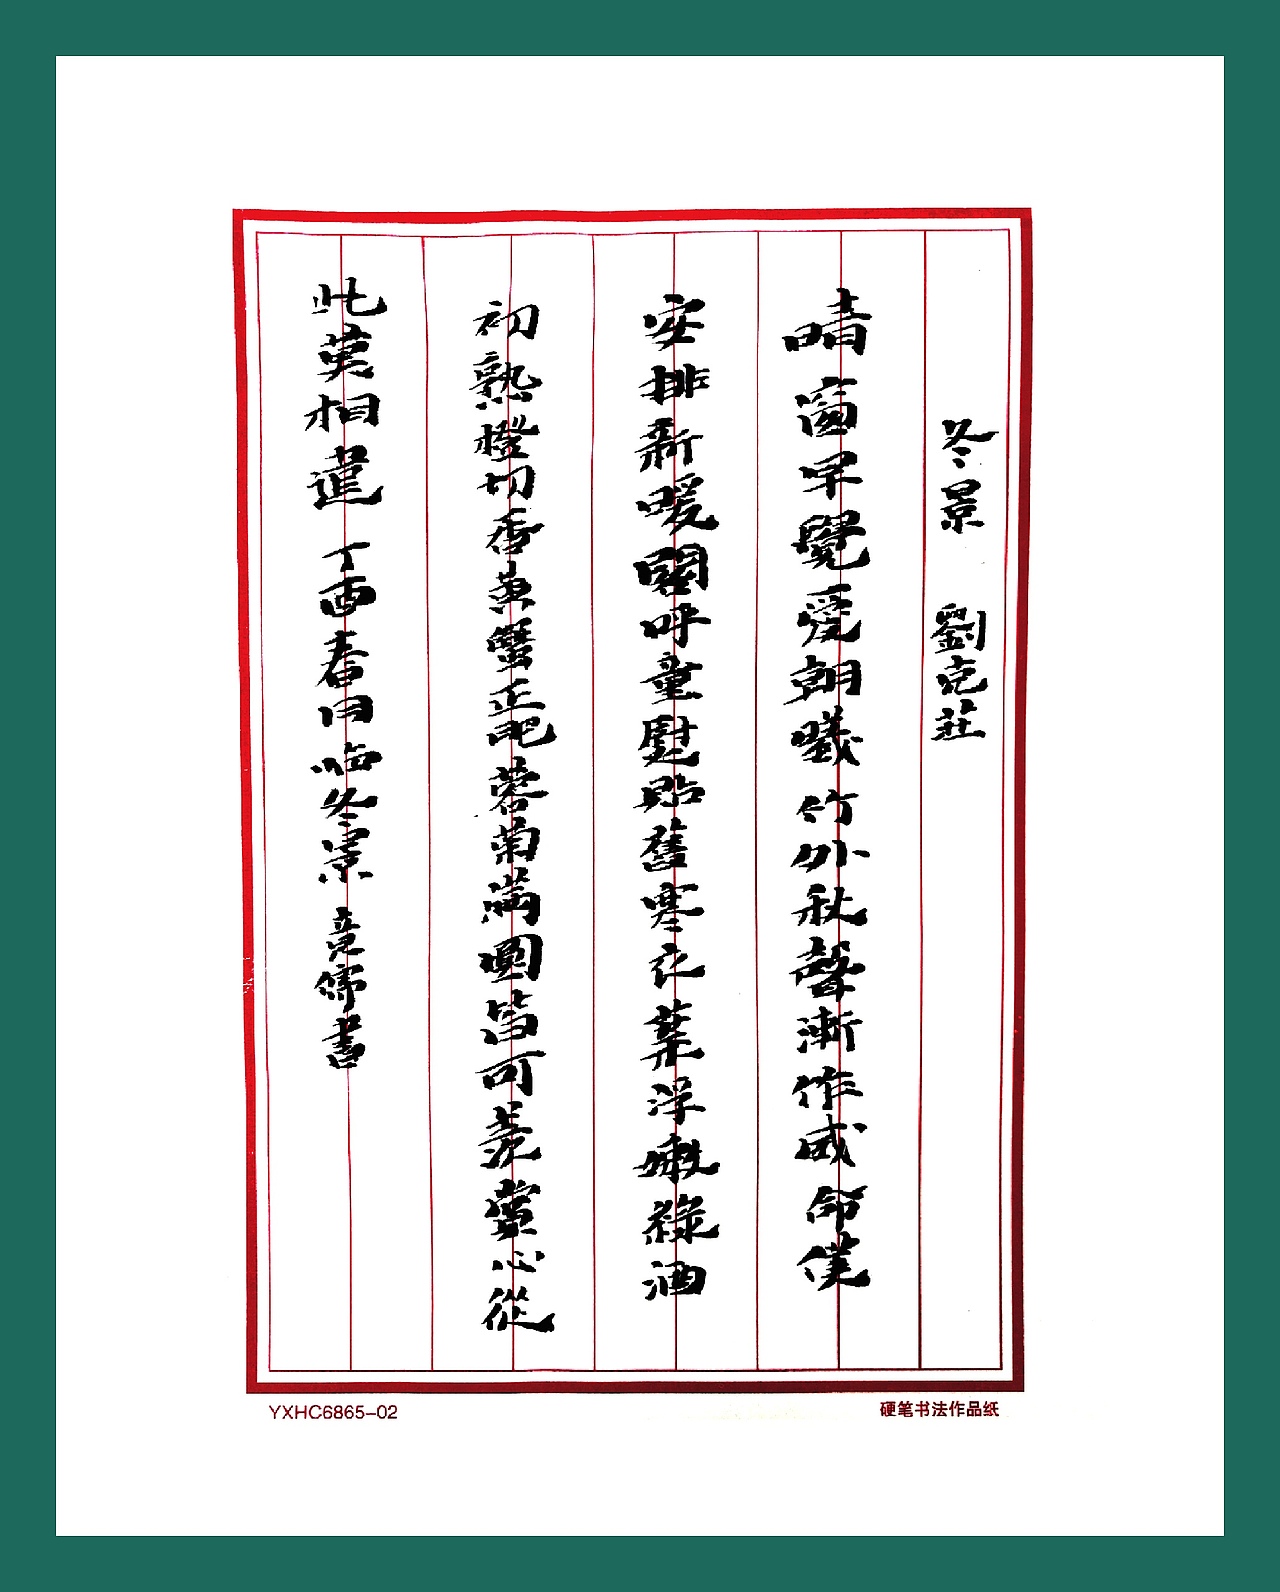 冬景 劉克莊
晴窗早覺愛朝曦竹外秋聲漸作威命僕
安排新暖閣呼童熨貼舊寒衣葉浮嫩綠酒
初熟橙切香黄蟹正肥蓉菊滿園皆可羨賞心從
此莫相違 丁酉春日临冬景 竟儒書
YXHC6865-02
硬笔书法作品纸